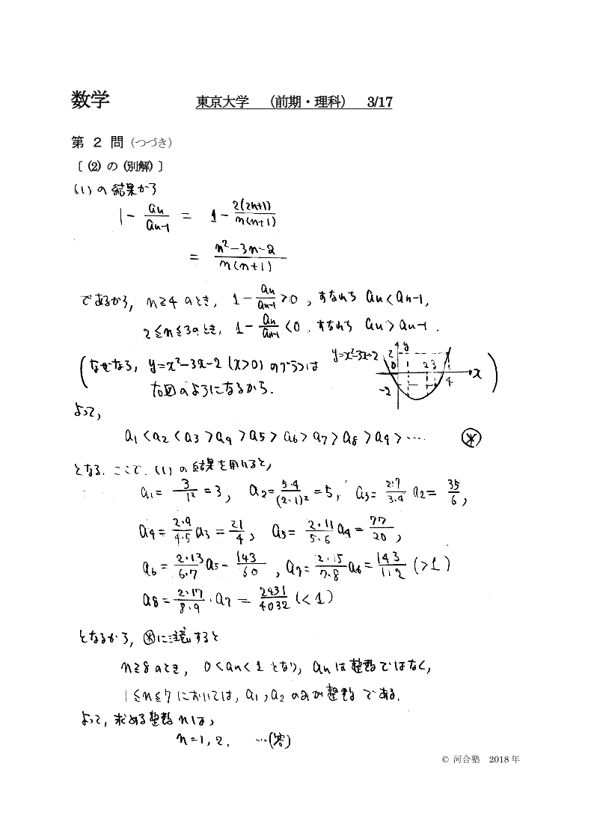 数学 東京大学 (前期・理科) 3/17
第 2 問 (つづき)
[ (2) の (別解) ]
(1)の結果から
1 - an/an-1 = 1 - 2(2n+1)/n(n+1)
= n²-3n-2/n(n+1)
であるから, n≧4 のとき, 1 - an/an-1 > 0, すなわち an < an-1,
2≦n≦3のとき, 1 - an/an-1 < 0, すなわち an > an-1.
(なぜなら, y=x²-3x-2 (x>0) のグラフは
右図のようになるから.)
y=x²-3x-2 y 2 0 -2 2 3 4 x
よって,
a1 < a2 < a3 > a4 > a5 > a6 > a7 > a8 > a9 > … ㊟
となる. ここで, (1)の結果を用いると,
a1 = 3/1² = 3, a2 = 5・4/(2・1)² = 5, a3 = 2・7/3・4 a2 = 35/6,
a4 = 2・9/4・5 a3 = 21/4, a5 = 2・11/5・6 a4 = 77/20,
a6 = 2・13/6・7 a5 = 143/60, a7 = 2・15/7・8 a6 = 143/112 (>1)
a8 = 2・17/8・9 ・a7 = 2431/4032 (<1)
となるから, に注意すると
n≧8のとき, 0<an<1 となり, an は整数ではなく,
1≦n≦7 においては, a1, a2 のみが整数である.
よって, 求める整数 n は,
n=1, 2. …(答)
© 河合塾 2018 年